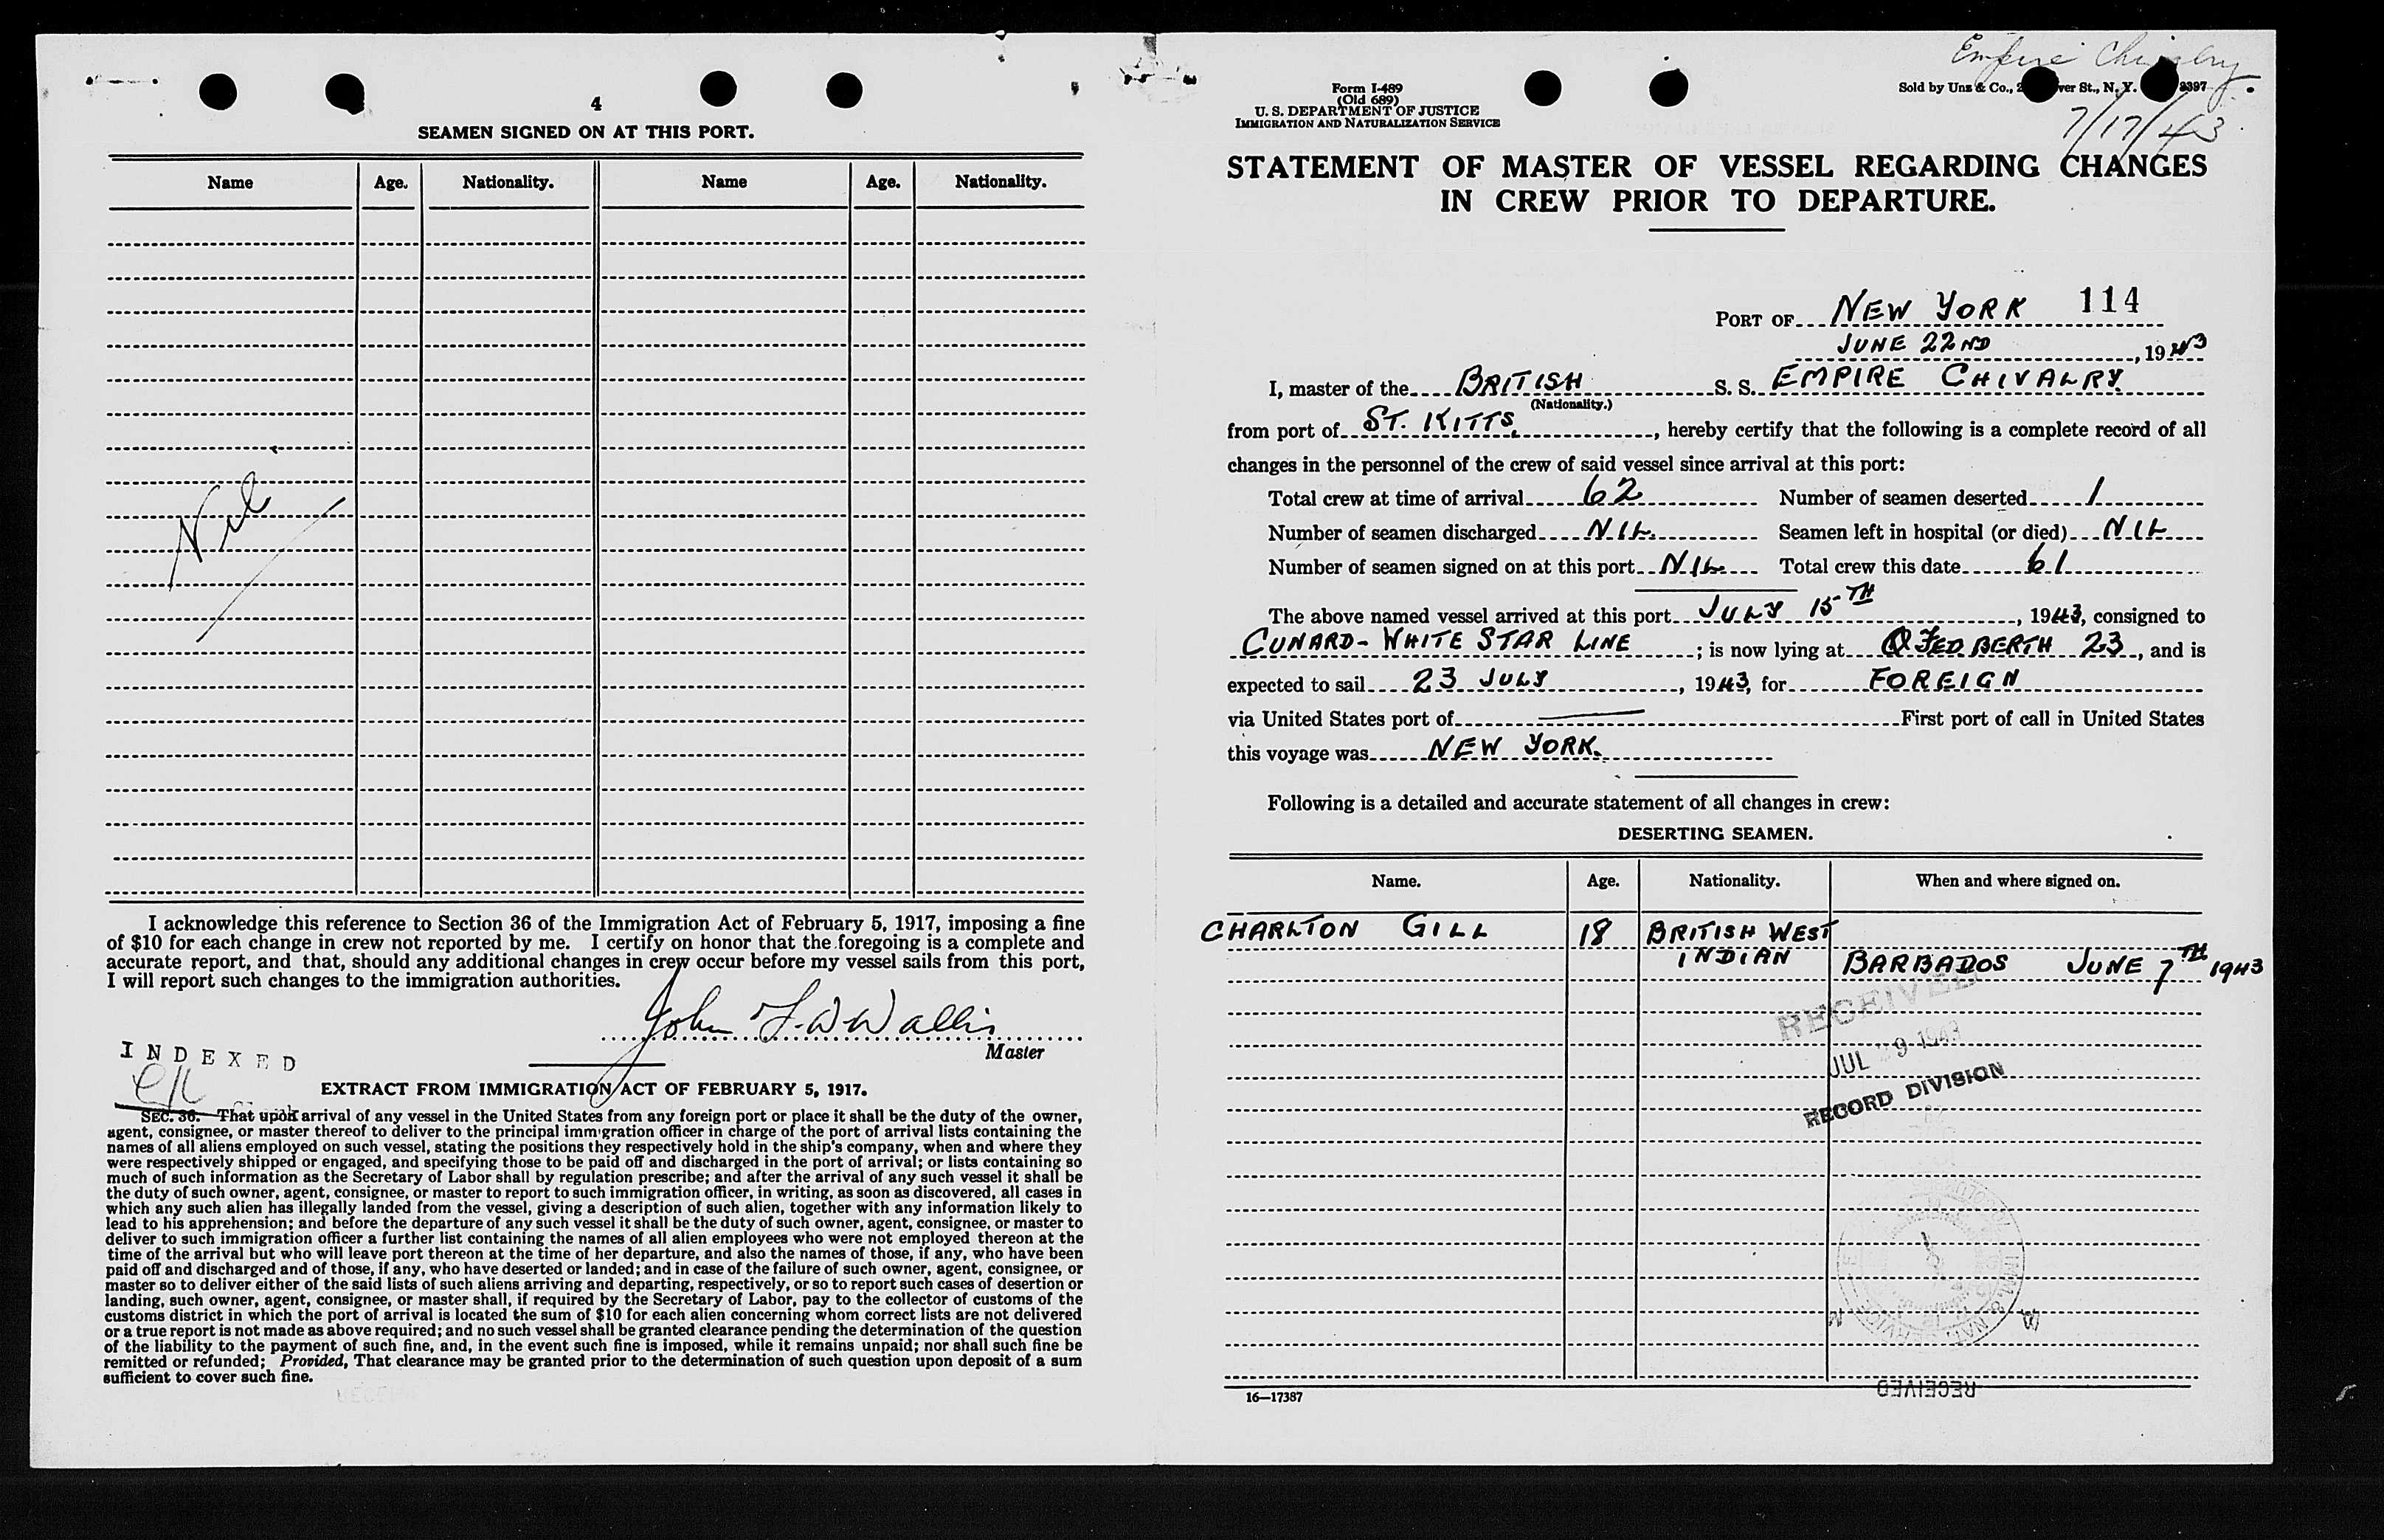 4
SEAMEN SIGNED ON AT THIS PORT.
Name Age. Nationality. Name Age. Nationality.
Nil
I acknowledge this reference to Section 36 of the Immigration Act of February 5, 1917, imposing a fine
of $10 for each change in crew not reported by me. I certify on honor that the foregoing is a complete and
accurate report, and that, should any additional changes in crew occur before my vessel sails from this port,
I will report such changes to the immigration authorities.
John F. W. Wallis
Master
INDEXED
EXTRACT FROM IMMIGRATION ACT OF FEBRUARY 5, 1917.
SEC. 36. That upon arrival of any vessel in the United States from any foreign port or place it shall be the duty of the owner,
agent, consignee, or master thereof to deliver to the principal immigration officer in charge of the port of arrival lists containing the
names of all aliens employed on such vessel, stating the positions they respectively hold in the ship's company, when and where they
were respectively shipped or engaged, and specifying those to be paid off and discharged in the port of arrival; or lists containing so
much of such information as the Secretary of Labor shall by regulation prescribe; and after the arrival of any such vessel it shall be
the duty of such owner, agent, consignee, or master to report to such immigration officer, in writing, as soon as discovered, all cases in
which any such alien has illegally landed from the vessel, giving a description of such alien, together with any information likely to
lead to his apprehension; and before the departure of any such vessel it shall be the duty of such owner, agent, consignee, or master to
deliver to such immigration officer a further list containing the names of all alien employees who were not employed thereon at the
time of the arrival but who will leave port thereon at the time of her departure, and also the names of those, if any, who have been
paid off and discharged and of those, if any, who have deserted or landed; and in case of the failure of such owner, agent, consignee, or
master so to deliver either of the said lists of such aliens arriving and departing, respectively, or so to report such cases of desertion or
landing, such owner, agent, consignee, or master shall, if required by the Secretary of Labor, pay to the collector of customs of the
customs district in which the port of arrival is located the sum of $10 for each alien concerning whom correct lists are not delivered
or a true report is not made as above required; and no such vessel shall be granted clearance pending the determination of the question
of the liability to the payment of such fine, and, in the event such fine is imposed, while it remains unpaid; nor shall such fine be
remitted or refunded; Provided, That clearance may be granted prior to the determination of such question upon deposit of a sum
sufficient to cover such fine.
Empire Chivalry
7/17/43
Form I-489
(Old 689)
U. S. DEPARTMENT OF JUSTICE
IMMIGRATION AND NATURALIZATION SERVICE
Sold by Unz & Co., 2 ver St., N. Y. 3397
STATEMENT OF MASTER OF VESSEL REGARDING CHANGES
IN CREW PRIOR TO DEPARTURE.
PORT OF NEW YORK 114
JUNE 22ND, 1943
I, master of the BRITISH S. S. EMPIRE CHIVALRY
(Nationality.)
from port of ST. KITTS, hereby certify that the following is a complete record of all
changes in the personnel of the crew of said vessel since arrival at this port:
Total crew at time of arrival 62 Number of seamen deserted 1
Number of seamen discharged NIL. Seamen left in hospital (or died) NIL
Number of seamen signed on at this port NIL Total crew this date 61
The above named vessel arrived at this port JULY 15TH, 1943, consigned to
CUNARD-WHITE STAR LINE; is now lying at BERTH 23, and is
expected to sail 23 JULY, 1943, for FOREIGN
via United States port of — First port of call in United States
this voyage was NEW YORK.
Following is a detailed and accurate statement of all changes in crew:
DESERTING SEAMEN.
Name. Age. Nationality. When and where signed on.
CHARLTON GILL 18 BRITISH WEST
INDIAN BARBADOS JUNE 7TH 1943
RECEIVED
JUL 9 1943
RECORD DIVISION
RECEIVED
16—17387